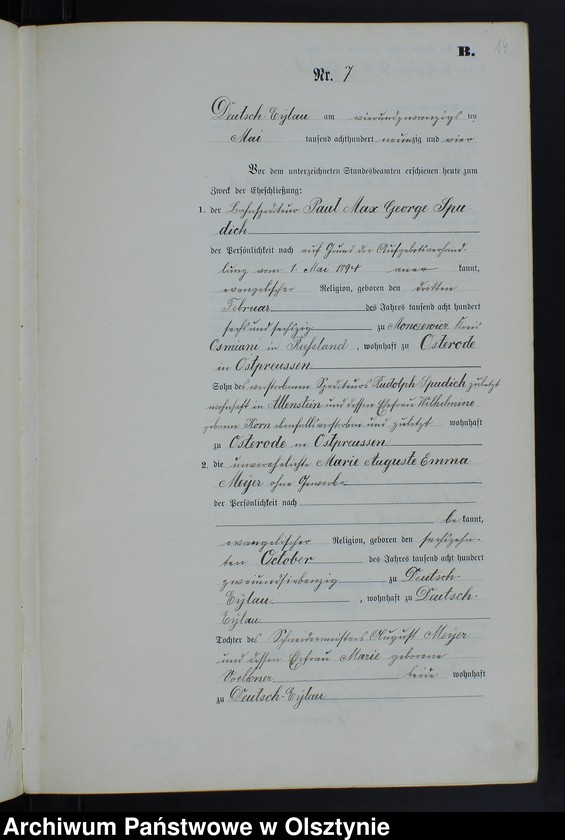 B.
14
Nr. 7
Deutsch-Eylau am vierundzwanzigs ten
Mai tausend achthundert neunzig und vier
Vor dem unterzeichneten Standesbeamten erschienen heute zum
Zweck der Eheschließung:
1. der Bahnspediteur Paul Max George Spu-
dich
der Persönlichkeit nach auf Grund der Aufgebotsverhand-
lung vom 1. Mai 1894 aner kannt,
evangelischer Religion, geboren den dritten
Februar des Jahres tausend acht hundert
sechs und sechszig zu Kreis
Osmiani in Russland, wohnhaft zu Osterode
in Ostpreussen
Sohn des verstorbenen Spediteurs Rudolph Spudich zuletzt
wohnhaft in Allenstein und dessen Ehefrau Wilhelmine
geborene Korn ebenfalls verstorben und zuletzt wohnhaft
zu Osterode in Ostpreussen
2. die unverehelichte Marie Auguste Emma
Meijer ohne Gewerbe
der Persönlichkeit nach
be kannt,
evangelischer Religion, geboren den sechszehn-
ten October des Jahres tausend acht hundert
zweiundsiebenzig zu Deutsch-
Eylau, wohnhaft zu Deutsch-
Eylau
Tochter des Schneidermeisters August Meijer
und dessen Ehefrau Marie geborene
beide wohnhaft
zu Deutsch-Eylau
Archiwum Państwowe w Olsztynie